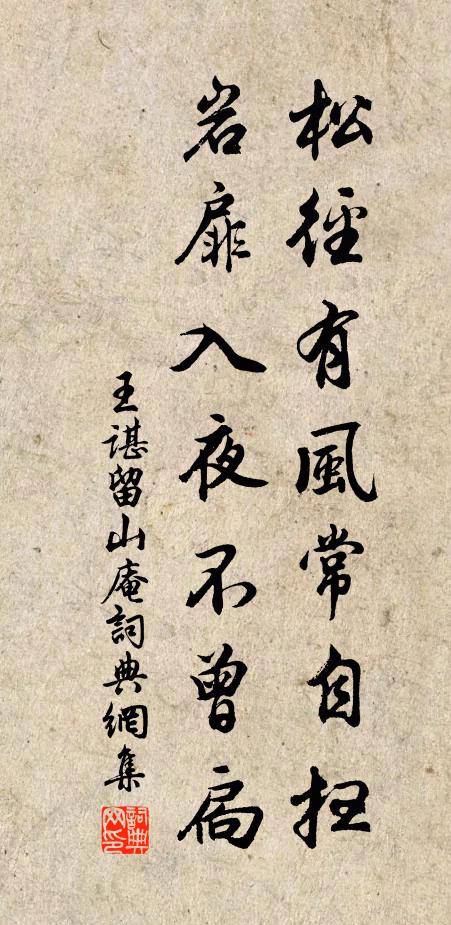 松徑有風常自扫
岩扉入夜不曾扃
王諶留山庵詞典網集
詞典网印